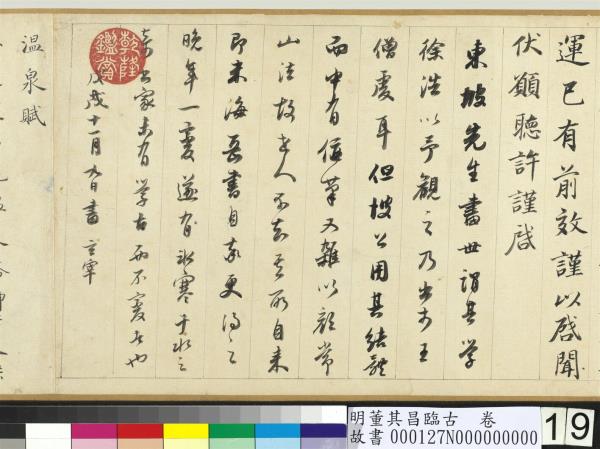 運已有前效謹以啓聞
伏願聽許謹啓
東坡先生書世謂其學
徐浩以予觀之乃出於王
僧虔耳但坡公用其結體
而中有偃筆又雜以顏常
山法故世人不知其所自來
即米海岳書自率更得之
晚年一變遂有冰寒于水之
奇書家未有學古而不變者也
戊戌十一月書 玄宰
乾隆鑑賞
温泉賦
明董其昌臨古 卷
故書 000127N000000000
19